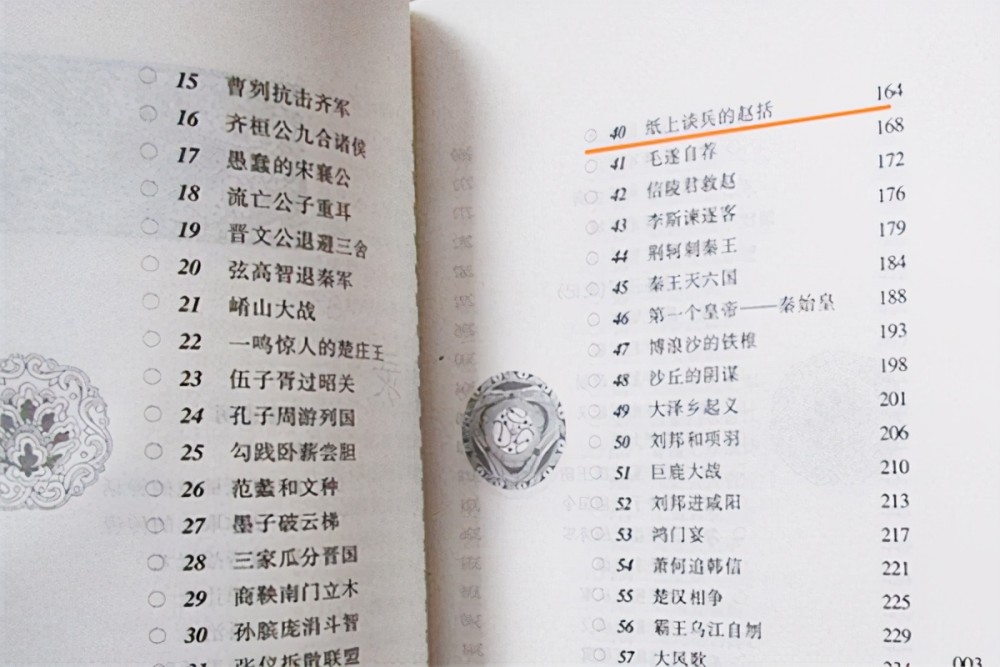 15 曹刿抗击齐军
16 齐桓公九合诸侯
17 愚蠢的宋襄公
18 流亡公子重耳
19 晋文公退避三舍
20 弦高智退秦军
21 崤山大战
22 一鸣惊人的楚庄王
23 伍子胥过昭关
24 孔子周游列国
25 勾践卧薪尝胆
26 范蠡和文种
27 墨子破云梯
28 三家瓜分晋国
29 商鞅南门立木
30 孙膑庞涓斗智
31 张仪拆散联盟
40 纸上谈兵的赵括 164
41 毛遂自荐 168
42 信陵君救赵 172
43 李斯谏逐客 176
44 荆轲刺秦王 179
45 秦王灭六国 184
46 第一个皇帝——秦始皇 188
47 博浪沙的铁椎 193
48 沙丘的阴谋 198
49 大泽乡起义 201
50 刘邦和项羽 206
51 巨鹿大战 210
52 刘邦进咸阳 213
53 鸿门宴 217
54 萧何追韩信 221
55 楚汉相争 225
56 霸王乌江自刎 229
57 大风歌
003